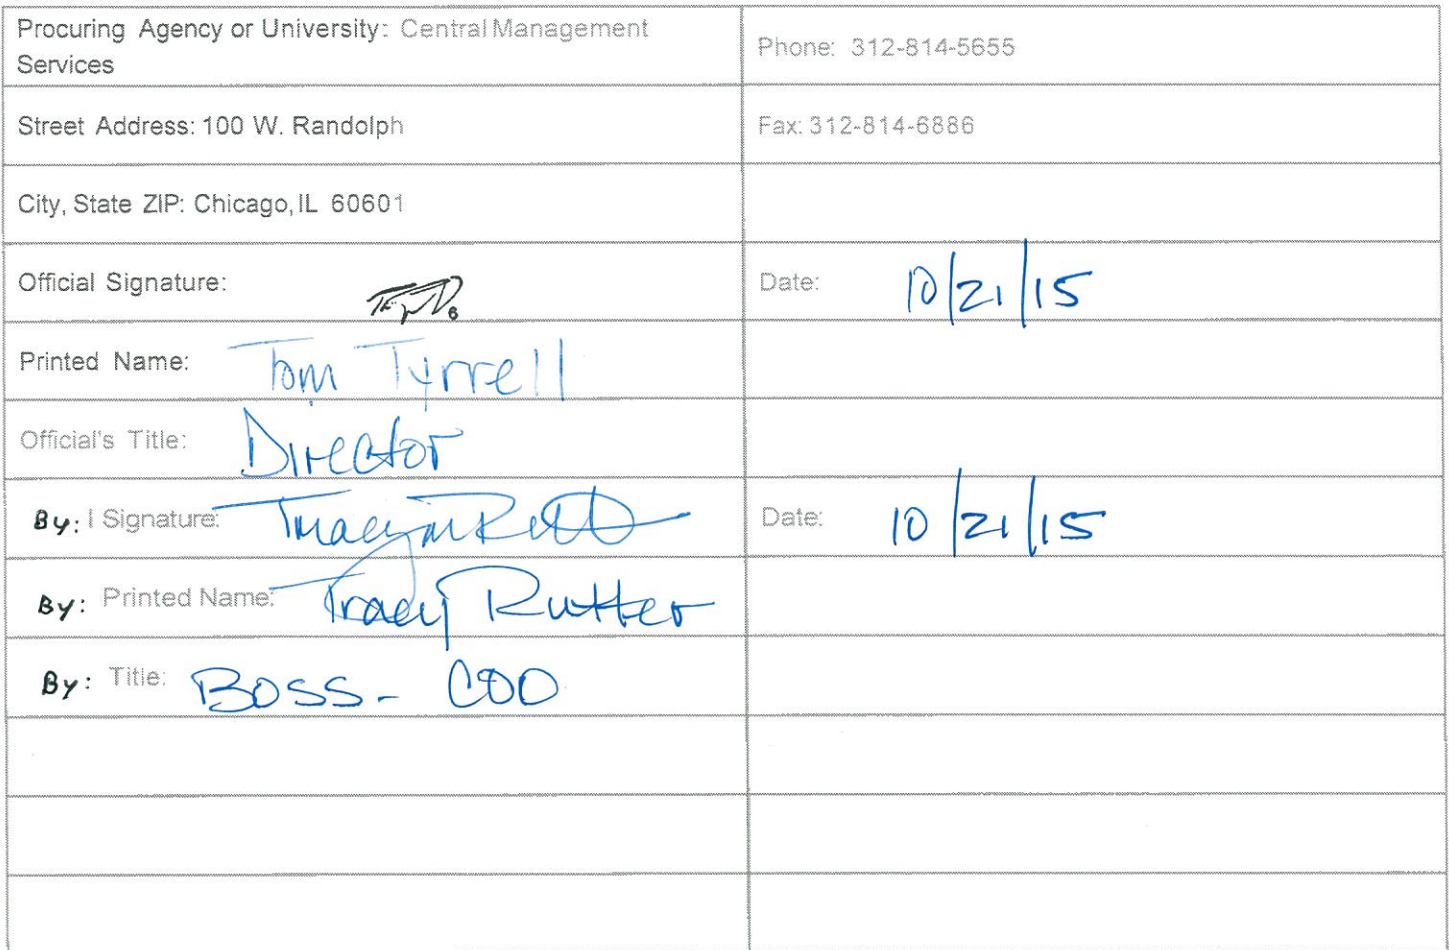 Procuring Agency or University: Central Management
Services
Phone: 312-814-5655
Street Address: 100 W. Randolph
Fax: 312-814-6886
City, State ZIP: Chicago, IL 60601
Official Signature:
Date: 10/21/15
Printed Name: Tom Tyrrell
Official's Title: Director
By: I Signature:
Date: 10/21/15
By: Printed Name: Tracy Rutter
By: Title: BOSS - COO